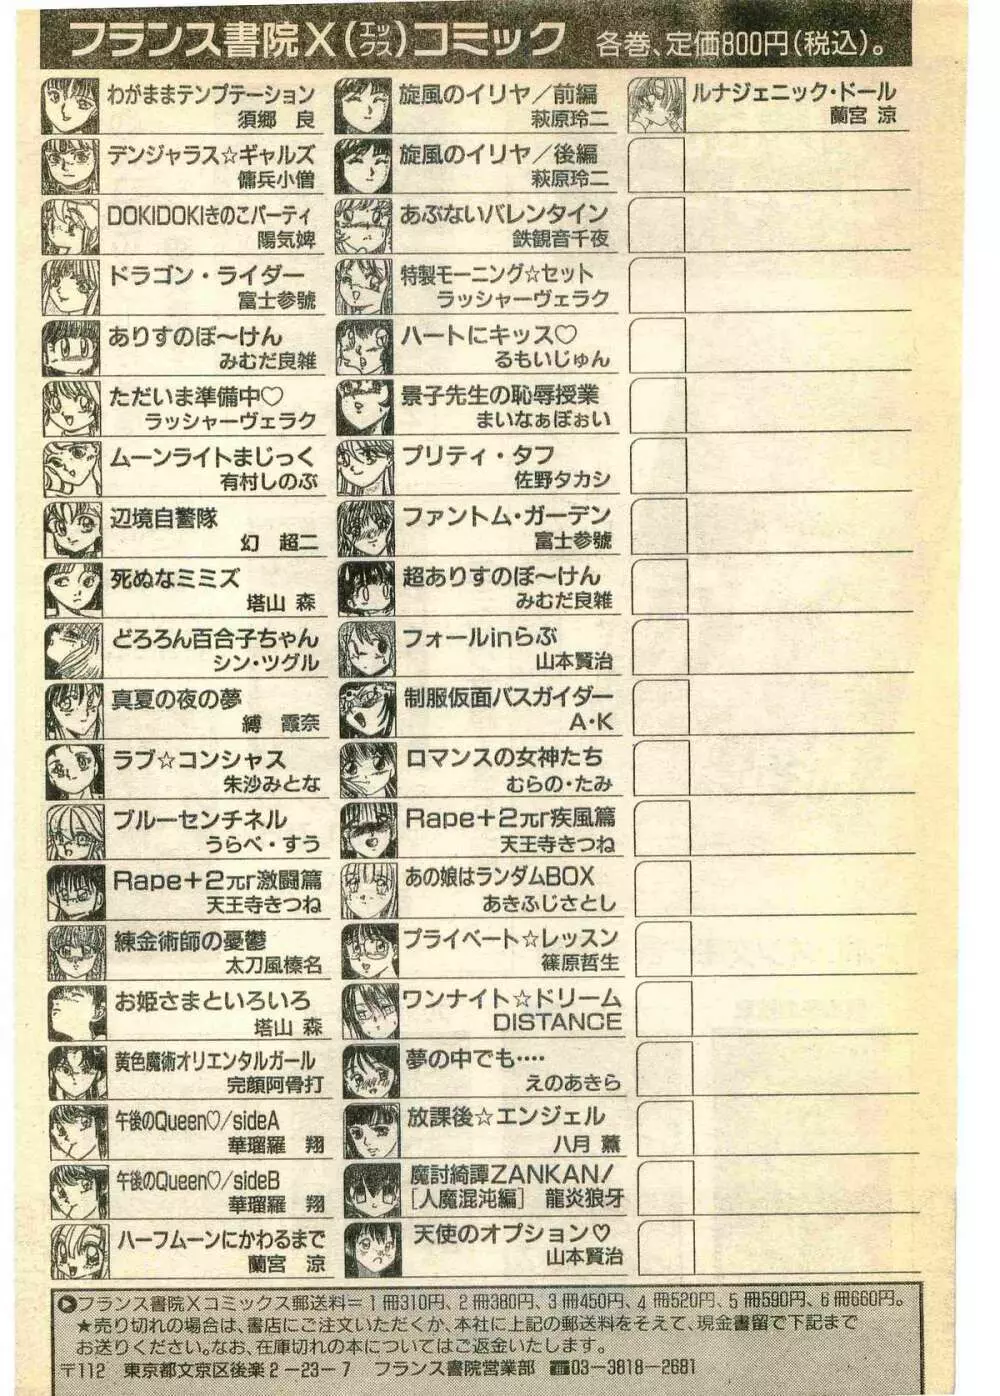 フランス書院X(エックス)コミック 各巻、定価800円(税込)。
わがままテンプテーション
須郷 良
デンジャラス☆ギャルズ
傭兵小僧
DOKIDOKIきのこパーティ
陽気婢
ドラゴン・ライダー
富士参號
ありすのぼ〜けん
みむだ良雑
ただいま準備中♡
ラッシャーヴェラク
ムーンライトまじっく
有村しのぶ
辺境自警隊
幻 超二
死ぬなミミズ
塔山 森
どろろん百合子ちゃん
シン・ツグル
真夏の夜の夢
縛 霞奈
ラブ☆コンシャス
朱沙みとな
ブルーセンチネル
うらべ・すう
Rape+2πr激闘篇
天王寺きつね
練金術師の憂鬱
太刀風榛名
お姫さまといろいろ
塔山 森
黄色魔術オリエンタルガール
完顔阿骨打
午後のQueen♡/sideA
華瑠羅 翔
午後のQueen♡/sideB
華瑠羅 翔
ハーフムーンにかわるまで
蘭宮 涼
旋風のイリヤ/前編
萩原玲二
旋風のイリヤ/後編
萩原玲二
あぶないバレンタイン
鉄観音千夜
特製モーニング☆セット
ラッシャーヴェラク
ハートにキッス♡
るもいじゅん
景子先生の恥辱授業
まいなぁぼぉい
プリティ・タフ
佐野タカシ
ファントム・ガーデン
富士参號
超ありすのぼ〜けん
みむだ良雑
フォールinらぶ
山本賢治
制服仮面バスガイダー
A・K
ロマンスの女神たち
むらの・たみ
Rape+2πr疾風篇
天王寺きつね
あの娘はランダムBOX
あきふじさとし
プライベート☆レッスン
篠原哲生
ワンナイト☆ドリーム
DISTANCE
夢の中でも‥‥
えのあきら
放課後☆エンジェル
八月 薫
魔討綺譚ZANKAN/
[人魔混沌編] 龍炎狼牙
天使のオプション♡
山本賢治
ルナジェニック・ドール
蘭宮 涼
▶フランス書院Xコミックス郵送料=1冊310円、2冊380円、3冊450円、4冊520円、5冊590円、6冊660円。
★売り切れの場合は、書店にご注文いただくか、本社に上記の郵送料をそえて、現金書留で下記まで
お送りください。なお、在庫切れの本についてはご返金いたします。
〒112 東京都文京区後楽2-23-7 フランス書院営業部 ☎03-3818-2681